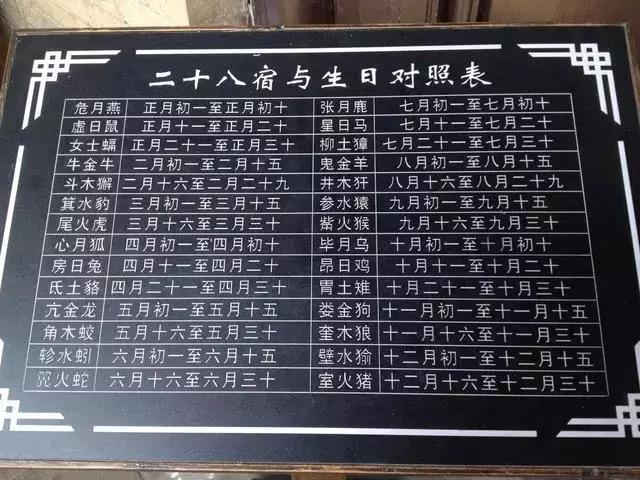 二十八宿与生日对照表
危月燕 正月初一至正月初十 张月鹿 七月初一至七月初十
虚日鼠 正月十一至正月二十 星日马 七月十一至七月二十
女士蝠 正月二十一至正月三十 柳土獐 七月二十一至七月三十
牛金牛 二月初一至二月十五 鬼金羊 八月初一至八月十五
斗木獬 二月十六至二月二十九 井木犴 八月十六至八月二十九
箕水豹 三月初一至三月十五 参水猿 九月初一至九月十五
尾火虎 三月十六至三月三十 觜火猴 九月十六至九月三十
心月狐 四月初一至四月初十 毕月乌 十月初一至十月初十
房日兔 四月十一至四月二十 昂日鸡 十月十一至十月二十
氐土貉 四月二十一至四月三十 胃土雉 十月二十一至十月三十
亢金龙 五月初一至五月十五 娄金狗 十一月初一至十一月十五
角木蛟 五月十六至五月三十 奎木狼 十一月十六至十一月三十
轸水蚓 六月初一至六月十五 壁水㺄 十二月初一至十二月十五
翼火蛇 六月十六至六月三十 室火猪 十二月十六至十二月三十